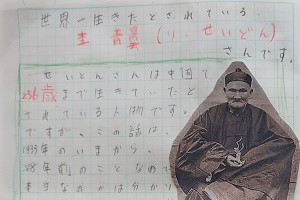 世界一生きたとされている
李青曇(り、せいどん)
さんです。
せいどんさんは中国で
256歳まで生きていたと
されている人物です。
ですが、この話は、
1933年のいまから、
年前のことなので
本当なのかは分か